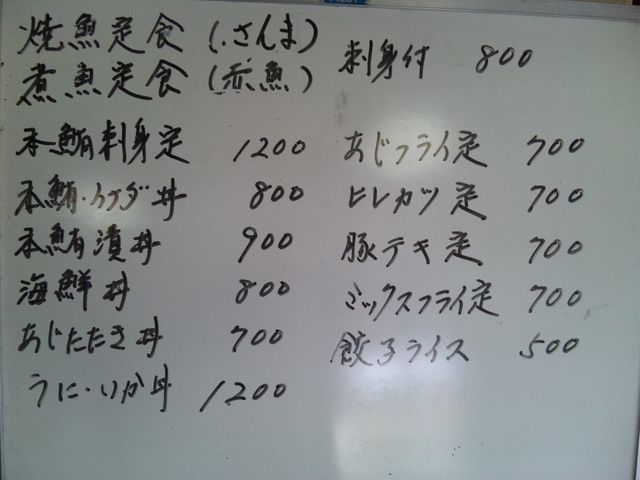 焼魚定食(さんま)
煮魚定食(赤魚)
刺身付 800
本鮪刺身定 1200
本鮪・イクダ丼 800
本鮪漬丼 900
海鮮丼 800
あじたたき丼 700
うに・いか丼 1200
あじフライ定 700
ヒレカツ定 700
豚テキ定 700
ミックスフライ定 700
餃子ライス 500